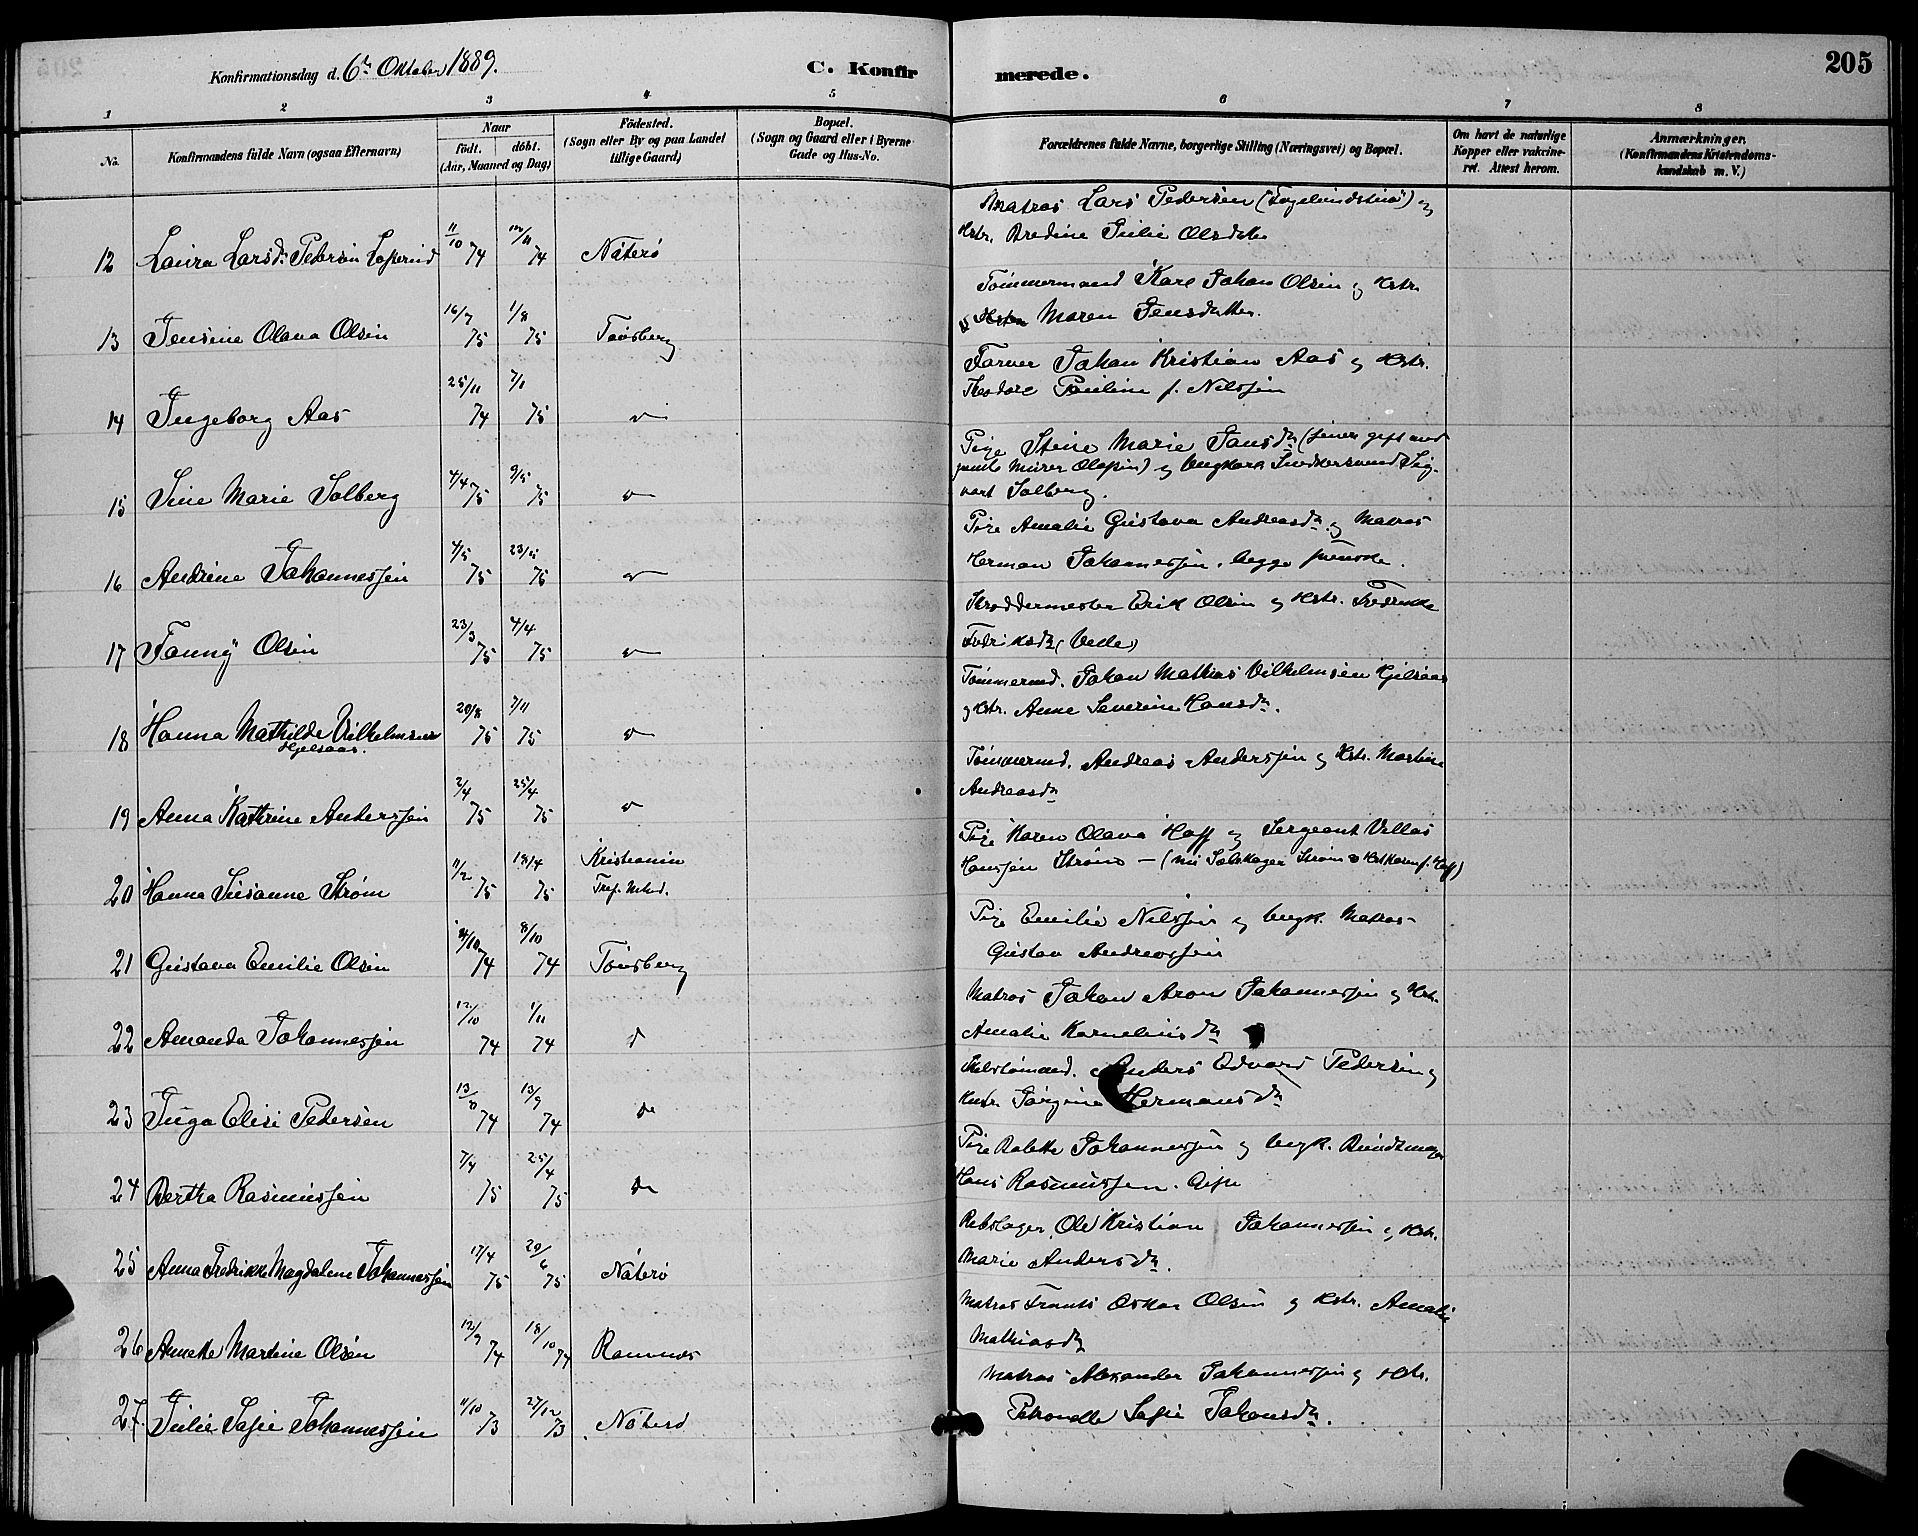 Konfirmationsdag d. 6te Oktober 1889.
C. Konfirmerede.
205
1 2 3 4 5 6 7 8
No. Konfirmandens fulde Navn (ogsaa Efternavn) Naar födt. döbt. (Aar, Maaned og Dag) Födested. (Sogn eller By og paa Landet tillige Gaard) Bopæl. (Sogn og Gaard eller i Byerne Gade og Hus-No. Forældrenes fulde Navne, borgerlige Stilling (Næringsvei) og Bopæl. Om havt de naturlige Kopper eller vakcineret. Attest herom. Anmærkninger. (Konfirmandens Kristendomskundskab m. V.)
12 Laura Larsdr. Pedersen 11/10 74 74 Nøterø
Matros Lars Pedersen og
Hstr. Bredine Julie Olsdatter
13 Jensine Olava Olsen 16/7 75 1/8 75 Tønsberg
Tømmermand Karl Johan Olsen og Hstr.
Maren Jensdatter.
14 Ingeborg Aas 25/11 74 7/1 75 "
Farver Johan Kristian Aas og Hstr.
Theodore Pauline f. Nilssen
15 Sine Marie Solberg 4/4 75 9/5 75 "
Pige Stine Marie Jansdr (senere gift med
Murer Olafsen) og Ungkarl Snedkersvend Sig-
vart Solberg.
16 Andrine Johannessen 4/5 75 75 "
Pige Amalie Gustava Andreasdr og Matros
Herman Johannessen, begge svenske.
17 Fanny Olsen 23/3 75 4/4 75 "
Skreddermester Erik Olsen og Hstr. Fredrikke
Fredriksdr
18 Hanna Mathilde Vilhelmsen 20/8 75 7/11 75 "
Hjelsaas.
Tømmermd. Johan Mathias Vilhelmsen Hjelsaas
og Hstr. Anne Severine Hansdr.
19 Anna Kathrine Anderssen 2/4 75 25/4 75 "
Tømmermd. Andreas Anderssen og Hstr. Martine
Andreasdr
20 Hanna Susanne Strøm 11/2 75 18/4 75 Kristiania
Tref. Mhd.
Pige Karen Olava Hoff og Sergeant
Hanssen Strøm — (nu Strøm og Karen f. Hoff)
21 Gustava Emilie Olsen 74 8/10 74 Tønsberg
Pige Emilie Nilssen og Ungk. Matros
Gustav Andreassen
22 Amanda Johannessen 12/10 74 1/11 74 d
Matros Johan Aron Johannessen og Hstr.
Amalie Korneliusdr
23 Inga Elisi Pedersen 74 13/9 74 do
Anders Edvard Pedersen og
Hustr. Jørgine Hermansdr
24 Bertha Rasmussen 7/4 75 25/4 75 do
Pige Johannessen og Ungk.
Hans Rasmussen.
25 Anna Fredrikke Magdalene Johannessen 17/4 75 20/6 75 Nøterø
Rebslager Ole Kristian Johannessen og Hstr.
Marie Andersdr.
26 Anette Martine Olsen 12/9 74 18/10 74 Ramnes
Matros Frants Oskar Olsen og Hstr. Amalie
Mathiasdr
27. Julie Sofie Johannessen 11/10 73 27/12 73 Nøterø
Matros Alexander Johannessen og Hstr.
Petronelle Sofie Johansdr.